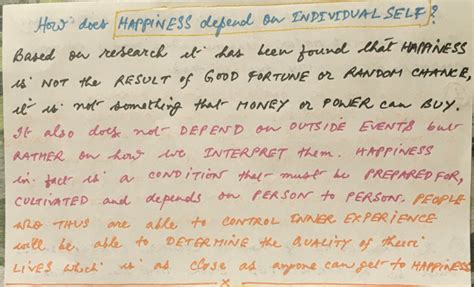 How does HAPPINESS depend on INDIVIDUAL SELF?
Based on research it has been found that HAPPINESS
is NOT the RESULT of GOOD FORTUNE or RANDOM CHANCE,
it is not something that MONEY or POWER can BUY.
It also does not DEPEND on OUTSIDE EVENTS but
RATHER on how we INTERPRET them. HAPPINESS
in fact is a CONDITION that must be PREPARED FOR,
CULTIVATED and depends on PERSON to PERSON. PEOPLE
WHO THUS are able to CONTROL INNER EXPERIENCE
will be able to DETERMINE the QUALITY of their
LIVES which is as close as anyone can get to HAPPINESS
x